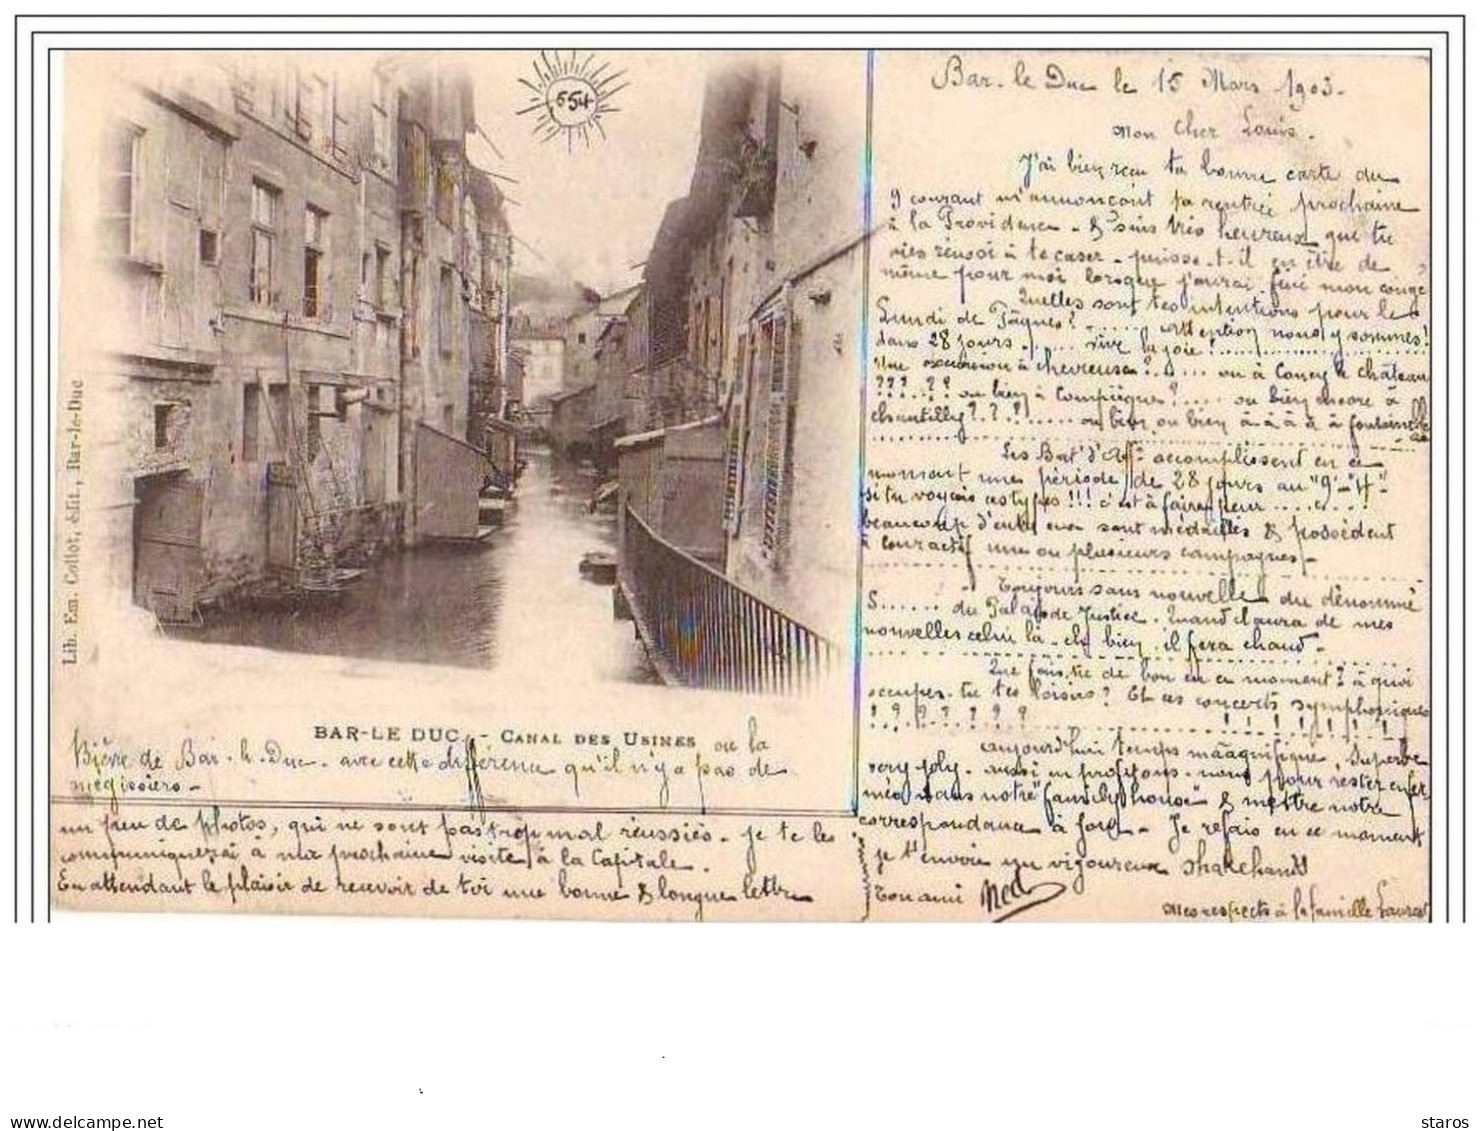 654
Lib. Em. Collot, édit., Bar-le-Duc
BAR-LE DUC. - CANAL DES USINES ou la
Bièvre de Bar-le-Duc. avec cette différence qu'il n'y a pas de
mégissiers -
Bar-le Duc le 15 Mars 1903.
Mon Cher Louis.
J'ai bien reçu ta bonne carte du
9 courant m'annonçant ta rentrée prochaine
à la Providence - & suis très heureux que tu
aies réussi à te caser - puisse-t-il en être de
même pour moi lorsque j'aurai fini mon congé
Quelles sont tes intentions pour le
Lundi de Pâques? ...... Attention nous y sommes!
dans 28 jours ....... vive la joie! ..............
Une excursion à chevreuse? ..... ou à Coucy le château
???..?? ou bien à Compiègne? .... ou bien encore à
chantilly?.?.! ...... ou bien, ou bien à-à à à à
Les accomplissent en ce
moment une période de 28 jours au
si tu voyais ces types!!! c'est à faire peur .......
beaucoup d'entre eux sont médaillés & possèdent
à leur actif une ou plusieurs campagnes -
Toujours sans nouvelle du dénommé
S...... du Palais de Justice. Quand l'aura de mes
nouvelles celui là - eh bien, il fera chaud -
Que fais-tu de bon en ce moment? à quoi
occupes-tu tes loisirs? Et ces concerts symphoniques
? ? ? ? ? ? ? ! ! ! ! ! ! !
aujourd'hui temps magnifique, superbe
very joly - aussi en profitons-nous pour rester enfer
més dans notre "family house" & mettre notre
correspondance à jour - Je refais en ce moment
un peu de photos, qui ne sont pas trop mal réussies - je te les
communiquerai à ma prochaine visite à la Capitale.
En attendant le plaisir de recevoir de toi une bonne & longue lettre
je t'envoie un vigoureux shakehand
Ton ami Ned
Mes respects à la famille
delcampe.net
staros